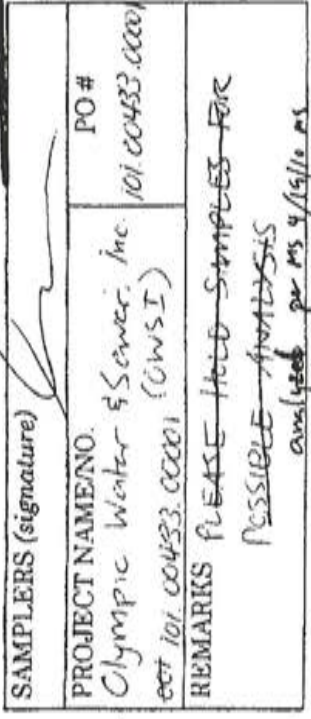 SAMPLERS (signature)
PROJECT NAME/NO.
Olympic Water & Sewer, Inc.
(OWSI)
101.00433.00001
PO #
101.00433.00001
REMARKS PLEASE HOLD SAMPLES FOR
POSSIBLE ANALYSIS
analyzed per MS 4/19/10 MS